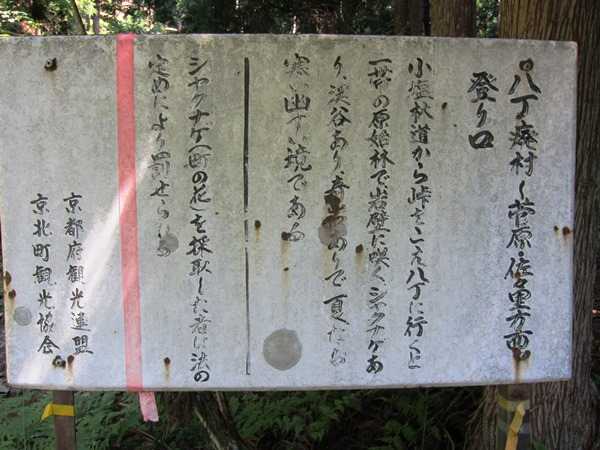 八丁廃村〜菅原・佐々里方面
登り口
小塩林道から峠をこえ八丁に行くと
一帯の原始林で岩壁に咲くシャクナゲあ
り、渓谷あり春ありで夏なお
寒い幽すい境である
シャクナゲ(町の花)を採取した者は法の
定めにより罰せられる
京都府観光連盟
京北町観光協会